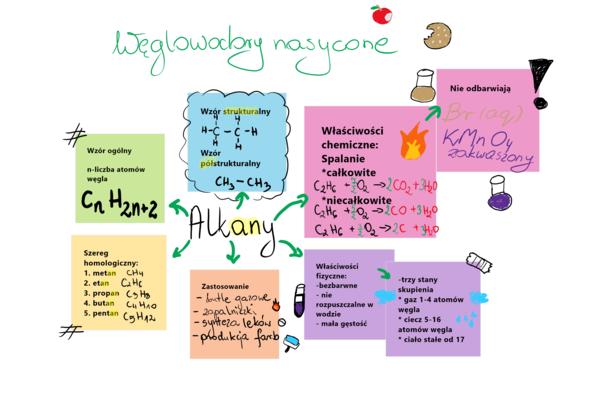 Węglowodory nasycone
Wzór ogólny
n-liczba atomów
węgla
CnH2n+2
Wzór strukturalny
H H
H-C-C-H
H H
Wzór
półstrukturalny
CH3-CH3
Właściwości
chemiczne:
Spalanie
*całkowite
C2H6 + 7/2 O2 → 2CO2 + 3H2O
*niecałkowite
C2H6 + 5/2 O2 → 2CO + 3H2O
C2H6 + 3/2 O2 → 2C + 3H2O
Nie odbarwiają
Br (aq)
KMnO4
zakwaszony
Alkany
Szereg
homologiczny:
1. metan CH4
2. etan C2H6
3. propan C3H8
4. butan C4H10
5. pentan C5H12
Zastosowanie
- butle gazowe
- zapalniczki
- synteza leków
- produkcja farb
Właściwości
fizyczne:
-bezbarwne
- nie
rozpuszczalne w
wodzie
- mała gęstość
-trzy stany
skupienia
* gaz 1-4 atomów
węgla
* ciecz 5-16
atomów węgla
* ciało stałe od 17